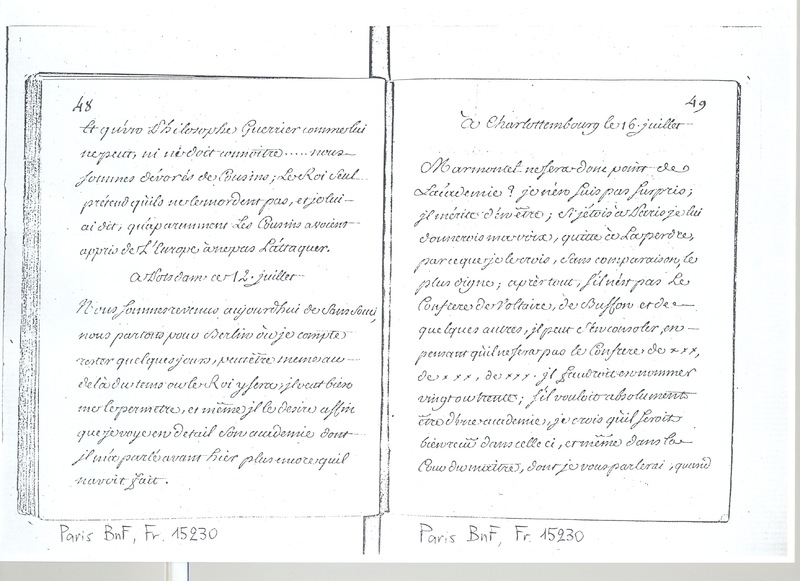 48
Et qu'vro Philosophe Guerrier comme lui
ne peut, ni ne doit connoitre ..... nous
sommes dévorés de Cousins; Le Roi seul
prétend qu'ils ne le mordent pas, et je lui
ai dit, qu'aparumment Les Cousins avoient
appris de L'Europe à ne pas L'attaquer.
a Potsdam ce 12. juillet
Nous sommes revenus aujourdhui de Sans Souci,
nous partons pour Berlin où je compte
rester quelques jours, peutêtre meme au-
delà du tems ou le Roi y sera; il veut bien
me le permettre, et même jl le desire affin
que je voye en detail Son academie dont
jl m'a parlé avant hier plus encore quil
n'avoit fait.
Paris BnF, Fr. 15230
49
à Charlottembourg le 16. juillet
Marmontel ne sera donc point de
L'académie? je n'en suis pas surpris;
jl mérite d'en être; Si j'étois à Paris je lui
donnerois ma voix, quitte à La perdre,
parceque je le crois, sans comparaison, le
plus digne; après tout, s'il n'est pas Le
Confrere de Voltaire, de Buffon et de
quelques autres, jl peut s'en consoler, en
pensant qu'il ne sera pas le Confrere de xxx,
de xxx, de xxx. jl faudroit en nommer
vingt ou trente; s'il vouloit absolument
être d'une academie, je crois qu'il seroit
bien reçu dans celle ci, et même dans la
Cour du maître, dont je vous parlerai, quand
Paris BnF, Fr. 15230